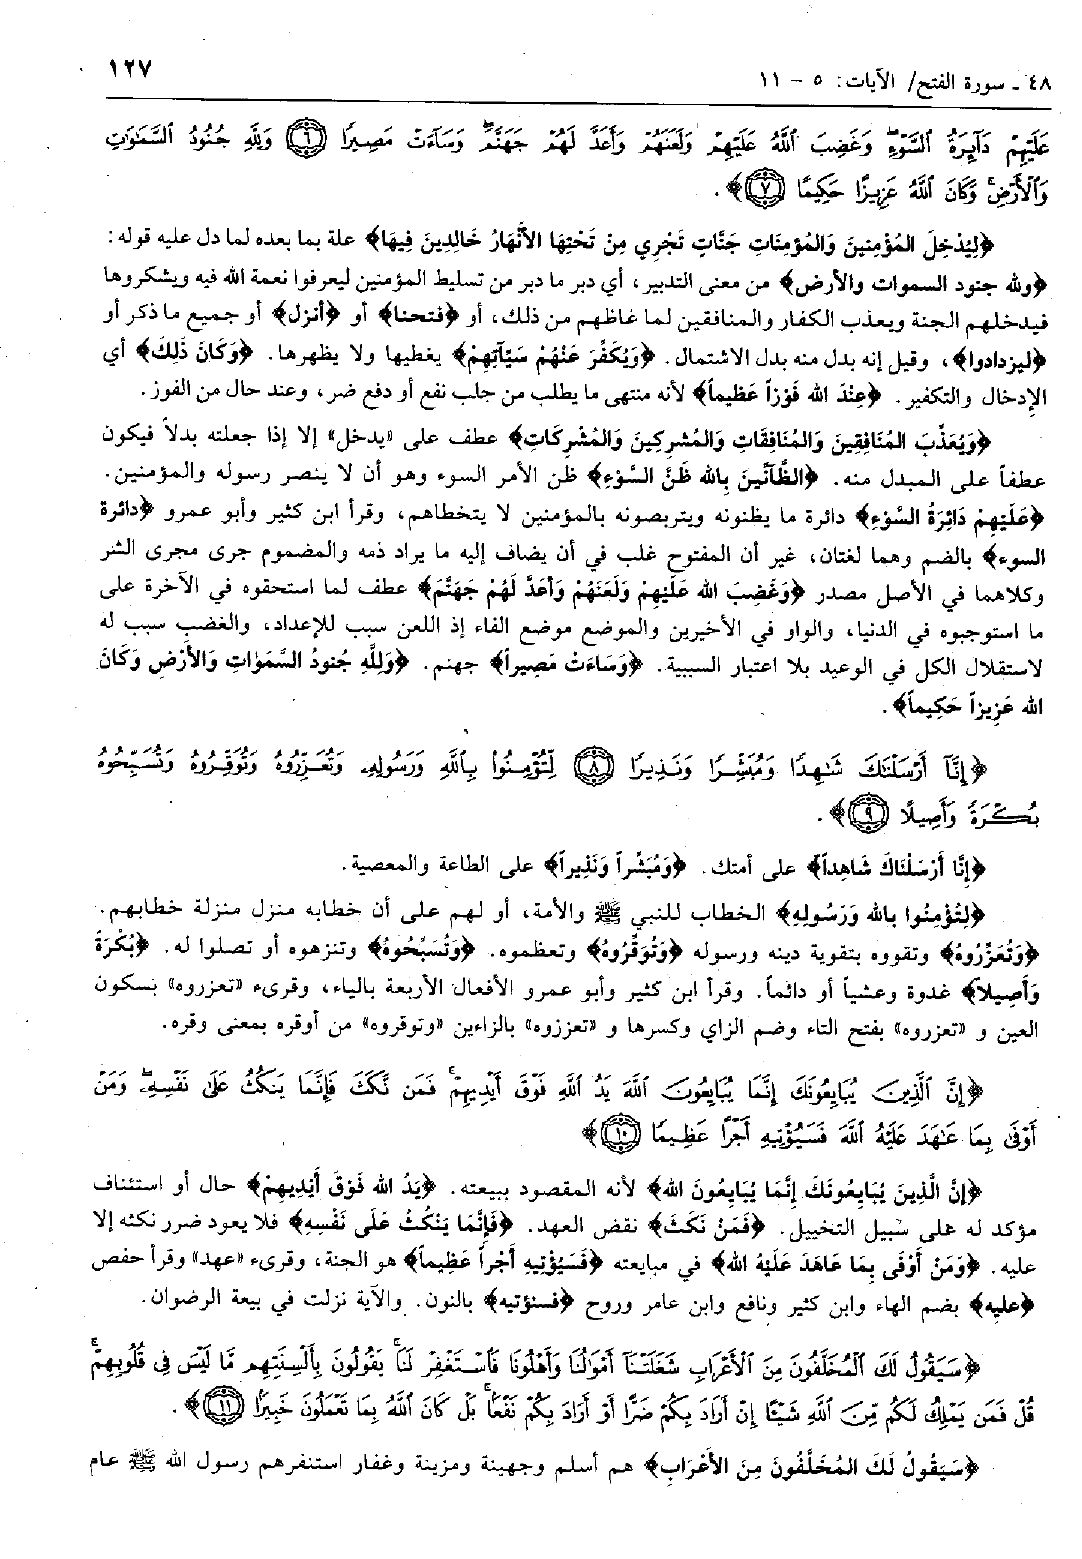 ٤٨ ـ سورة الفتح/ الآيات: ٥ - ١١
١٢٧
عَلَيْهِمْ دَآئِرَةُ ٱلسَّوْءِ وَغَضِبَ ٱللَّهُ عَلَيْهِمْ وَلَعَنَهُمْ وَأَعَدَّ لَهُمْ جَهَنَّمَ وَسَآءَتْ مَصِيرًا ﴿٦﴾ وَلِلَّهِ جُنُودُ ٱلسَّمَٰوَٰتِ
وَٱلْأَرْضِ وَكَانَ ٱللَّهُ عَزِيزًا حَكِيمًا ﴿٧﴾﴾.
﴿لِيُدْخِلَ المُؤمِنينَ وَالمُؤمِنَاتِ جَنَّاتٍ تَجْرِي مِنْ تَحْتِهَا الأَنْهَارُ خَالِدِينَ فِيهَا﴾ علة بما بعده لما دل عليه قوله:
﴿ولله جنود السموات والأرض﴾ من معنى التدبير، أي دبر ما دبر من تسليط المؤمنين ليعرفوا نعمة الله فيه ويشكروها
فيدخلهم الجنة ويعذب الكفار والمنافقين لما غاظهم من ذلك، أو ﴿فتحنا﴾ أو ﴿أنزل﴾ أو جميع ما ذكر أو
﴿ليزدادوا﴾، وقيل إنه بدل منه بدل الاشتمال. ﴿وَيُكَفِّرَ عَنْهُمْ سَيِّآتِهِمْ﴾ يغطيها ولا يظهرها. ﴿وَكَانَ ذَلِكَ﴾ أي
الإدخال والتكفير. ﴿عِنْدَ الله فَوْزاً عَظِيماً﴾ لأنه منتهى ما يطلب من جلب نفع أو دفع ضر، وعند حال من الفوز.
﴿وَيُعَذِّبَ المُنَافِقِينَ وَالمُنَافِقَاتِ وَالمُشْرِكِينَ وَالمُشْرِكَاتِ﴾ عطف على «يدخل» إلا إذا جعلته بدلاً فيكون
عطفاً على المبدل منه. ﴿الظَّآنِّينَ بِالله ظَنَّ السَّوْءِ﴾ ظن الأمر السوء وهو أن لا ينصر رسوله والمؤمنين.
﴿عَلَيْهِمْ دَائِرَةُ السَّوْءِ﴾ دائرة ما يظنونه ويتربصونه بالمؤمنين لا يتخطاهم، وقرأ ابن كثير وأبو عمرو ﴿دائرة
السوء﴾ بالضم وهما لغتان، غير أن المفتوح غلب في أن يضاف إليه ما يراد ذمه والمضموم جرى مجرى الشر
وكلاهما في الأصل مصدر ﴿وَغَضِبَ الله عَلَيْهِمْ وَلَعَنَهُمْ وَأَعَدَّ لَهُمْ جَهَنَّمَ﴾ عطف لما استحقوه في الآخرة على
ما استوجبوه في الدنيا، والواو في الأخيرين والموضع موضع الفاء إذ اللعن سبب للإعداد، والغضب سبب له
لاستقلال الكل في الوعيد بلا اعتبار السببية. ﴿وَسَاءَتْ مَصِيراً﴾ جهنم. ﴿وَلِلَّهِ جُنُودُ السَّمَوَاتِ وَالأَرْضِ وَكَانَ
الله عَزِيزاً حَكِيماً﴾.
﴿إِنَّآ أَرْسَلْنَٰكَ شَٰهِدًا وَمُبَشِّرًا وَنَذِيرًا ﴿٨﴾ لِتُؤْمِنُوا بِٱللَّهِ وَرَسُولِهِ وَتُعَزِّرُوهُ وَتُوَقِّرُوهُ وَتُسَبِّحُوهُ
بُكْرَةً وَأَصِيلًا ﴿٩﴾﴾.
﴿إِنَّا أَرْسَلْنَاكَ شَاهِداً﴾ على أمتك. ﴿وَمُبَشِّراً وَنَذِيراً﴾ على الطاعة والمعصية.
﴿لِتُؤْمِنُوا بِالله وَرَسُولِهِ﴾ الخطاب للنبي ﷺ والأمة، أو لهم على أن خطابه منزل منزلة خطابهم.
﴿وَتُعَزِّرُوهُ﴾ وتقووه بتقوية دينه ورسوله ﴿وَتُوَقِّرُوهُ﴾ وتعظموه. ﴿وَتُسَبِّحُوهُ﴾ وتنزهوه أو تصلوا له. ﴿بُكْرَةً
وَأَصِيلاً﴾ غدوة وعشياً أو دائماً. وقرأ ابن كثير وأبو عمرو الأفعال الأربعة بالياء، وقرىء «تعزروه» بسكون
العين و «تعزروه» بفتح التاء وضم الزاي وكسرها و «تعززوه» بالزاءين «وتوقروه» من أوقره بمعنى وقره.
﴿إِنَّ ٱلَّذِينَ يُبَايِعُونَكَ إِنَّمَا يُبَايِعُونَ ٱللَّهَ يَدُ ٱللَّهِ فَوْقَ أَيْدِيهِمْ فَمَن نَّكَثَ فَإِنَّمَا يَنكُثُ عَلَىٰ نَفْسِهِ وَمَنْ
أَوْفَىٰ بِمَا عَٰهَدَ عَلَيْهُ ٱللَّهَ فَسَيُؤْتِيهِ أَجْرًا عَظِيمًا ﴿١٠﴾﴾
﴿إِنَّ الَّذِينَ يُبَايِعُونَكَ إِنَّمَا يُبَايِعُونَ الله﴾ لأنه المقصود ببيعته. ﴿يَدُ الله فَوْقَ أَيْدِيهِمْ﴾ حال أو استئناف
مؤكد له على سبيل التخييل. ﴿فَمَنْ نَكَثَ﴾ نقض العهد. ﴿فَإِنَّمَا يَنْكُثُ عَلَى نَفْسِهِ﴾ فلا يعود ضرر نكثه إلا
عليه. ﴿وَمَنْ أَوْفَى بِمَا عَاهَدَ عَلَيْهُ الله﴾ في مبايعته ﴿فَسَيُؤْتِيهِ أَجْراً عَظِيماً﴾ هو الجنة، وقرىء «عهد» وقرأ حفص
﴿عليه﴾ بضم الهاء وابن كثير ونافع وابن عامر وروح ﴿فسنؤتيه﴾ بالنون. والآية نزلت في بيعة الرضوان.
﴿سَيَقُولُ لَكَ ٱلْمُخَلَّفُونَ مِنَ ٱلْأَعْرَابِ شَغَلَتْنَآ أَمْوَٰلُنَا وَأَهْلُونَا فَٱسْتَغْفِرْ لَنَا يَقُولُونَ بِأَلْسِنَتِهِم مَّا لَيْسَ فِى قُلُوبِهِمْ
قُلْ فَمَن يَمْلِكُ لَكُم مِّنَ ٱللَّهِ شَيْئًا إِنْ أَرَادَ بِكُمْ ضَرًّا أَوْ أَرَادَ بِكُمْ نَفْعًا بَلْ كَانَ ٱللَّهُ بِمَا تَعْمَلُونَ خَبِيرًا ﴿١١﴾﴾.
﴿سَيَقُولُ لَكَ المُخَلَّفُونَ مِنَ الأَعْرَابِ﴾ هم أسلم وجهينة ومزينة وغفار استنفرهم رسول الله ﷺ عام